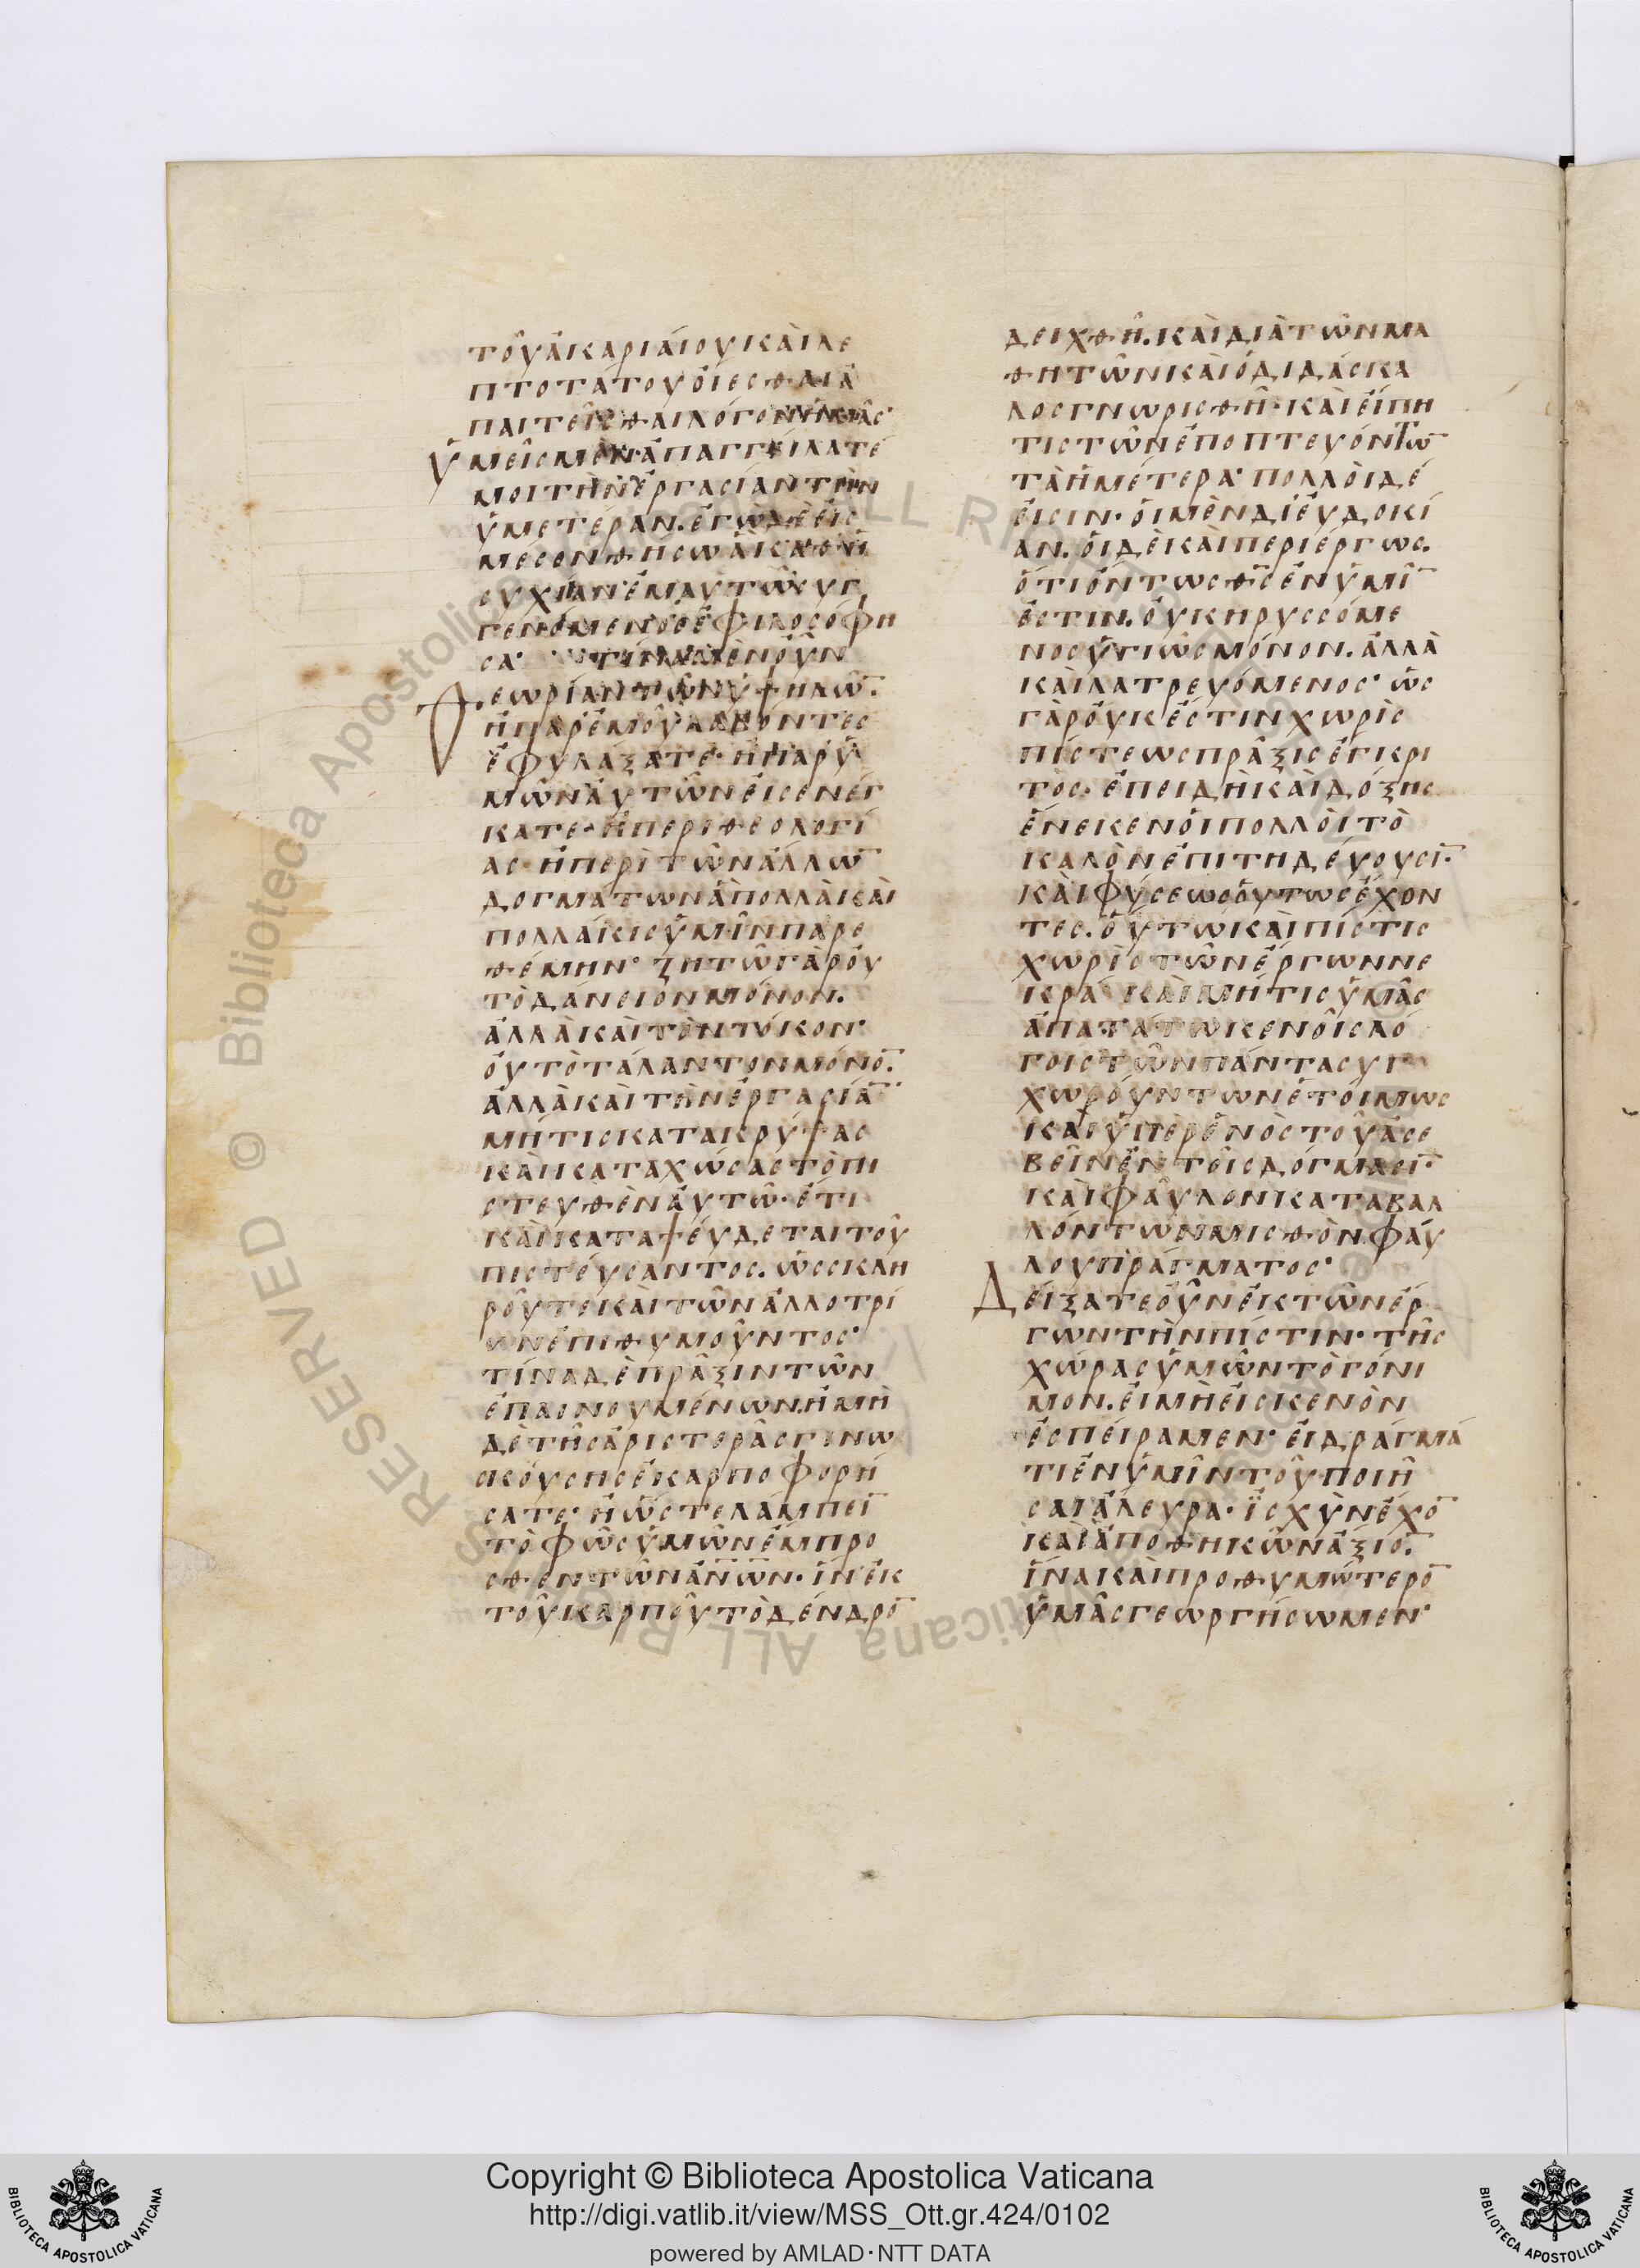 τοῦ ἀκαριαίου καὶ λε
πτοτάτου οἴεσθαι ἀ
παιτεῖσθαι λόγον ἡμᾶς·
ὑμεῖς μὲν ἀπαγγείλατέ
μοι τὴν ἐργασίαν τὴν
ὑμετέραν. ἐγὼ δὲ εἰς
μέσον θήσω ἃ καθ' ἡ
συχίαν ἐμαυτῷ συγ
γενόμενος ἐφιλοσόφη
σα· τίνα μὲν οὖν
θεωρίαν τῶν ὑψηλῶ̅.
ἢ παρ' ἐμοῦ λαβόντες
ἐφυλάξατε· ἢ παρ' ὑ
μῶν αὐτῶν εἰσενέγ
κατε· ἢ περὶ θεολογί
ας· ἢ περὶ τῶν ἄλλω̅
δογμάτων ἃ πολλὰ καὶ
πολλάκις ὑμῖν παρε
θέμην· ζητῶ γὰρ οὐ
τὸ δάνειον μόνον.
ἀλλὰ καὶ τὸν τόκον·
οὐ τὸ τάλαντον μόνο̅.
ἀλλὰ καὶ τὴν ἐργασία̅
μή τις κατακρύψας
καὶ καταχώσας τὸ πι
στευθὲν αὐτῷ· ἔτι
καὶ καταψεύδεται τοῦ
πιστεύσαντος. ὡς σκλη
ροῦ τε καὶ τῶν ἀλλοτρί
ων ἐπιθυμοῦντος·
τίνα δὲ πρᾶξιν τῶν
ἐπαινουμένων. ἢ μη
δὲ τῆς ἀριστερᾶς γινω
σκούσης ἐκαρποφορή
σατε· ἢ ὥστε λάμπει̅
τὸ φῶς ὑμῶν ἔμπρο
σθεν τῶν α̅ν̅ω̅ν̅. ἵν' ἐκ
τοῦ καρποῦ τὸ δένδρο̅
δειχθῇ. καὶ διὰ τῶν μα
θητῶν καὶ ὁ διδάσκα
λος γνωρισθῇ· καὶ εἴπῃ
τις τῶν ἐποπτευόντω̅
τὰ ἡμέτερα· πολλοὶ δέ
εἰσιν· οἱ μὲν δι' εὐδοκί
αν. οἱ δὲ καὶ περιέργως.
ὅτι ὄντως θ̅ς̅ ἐν ὑμῖ̅
ἐστιν. οὐ κηρυσσόμε
νος ὑγιῶς μόνον. ἀλλὰ
καὶ λατρευόμενος· ὡς
γὰρ οὐκ ἔστιν χωρὶς
πίστεως πρᾶξις ἔγκρι
τος. ἐπειδὴ καὶ δόξης
ἕνεκεν οἱ πολλοὶ τὸ
καλὸν ἐπιτηδεύουσι̅.
καὶ φύσεως οὕτως ἔχον
τες. οὕτω καὶ πίστις
χωρὶς τῶν ἔργων νε
κρά· καὶ μή τις ὑμᾶς
ἀπατάτω κενοῖς λό
γοις τῶν πάντα συγ
χωρούντων ἑτοίμως
καὶ ὑπὲρ ἑνὸς τοῦ ἀσε
βεῖν ἐν τοῖς δόγμασι̅·
καὶ φαῦλον καταβαλ
λόντων μισθὸν φαύ
λου πράγματος·
Δείξατε οὖν ἐκ τῶν ἔρ
γων τὴν πίστιν· τῆς
χώρας ὑμῶν τὸ γόνι
μον. εἰ μὴ εἰς κενὸν
ἐσπείραμεν· εἰ δράγμά
τι ἐν ὑμῖν τοῦ ποιῆ
σαι ἄλευρα· ἰσχὺν ἔχο̅
καὶ ἀποθηκῶν ἄξιο̅.
ἵνα καὶ προθυμότερο̅
ὑμᾶς γεωργήσωμεν·
Copyright © Biblioteca Apostolica Vaticana
http://digi.vatlib.it/view/MSS_Ott.gr.424/0102
powered by AMLAD·NTT DATA